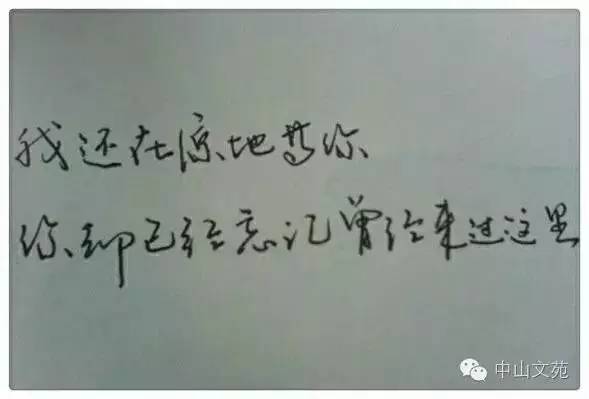 我还在原地等你
你却已经忘记曾经来过这里
中山文苑